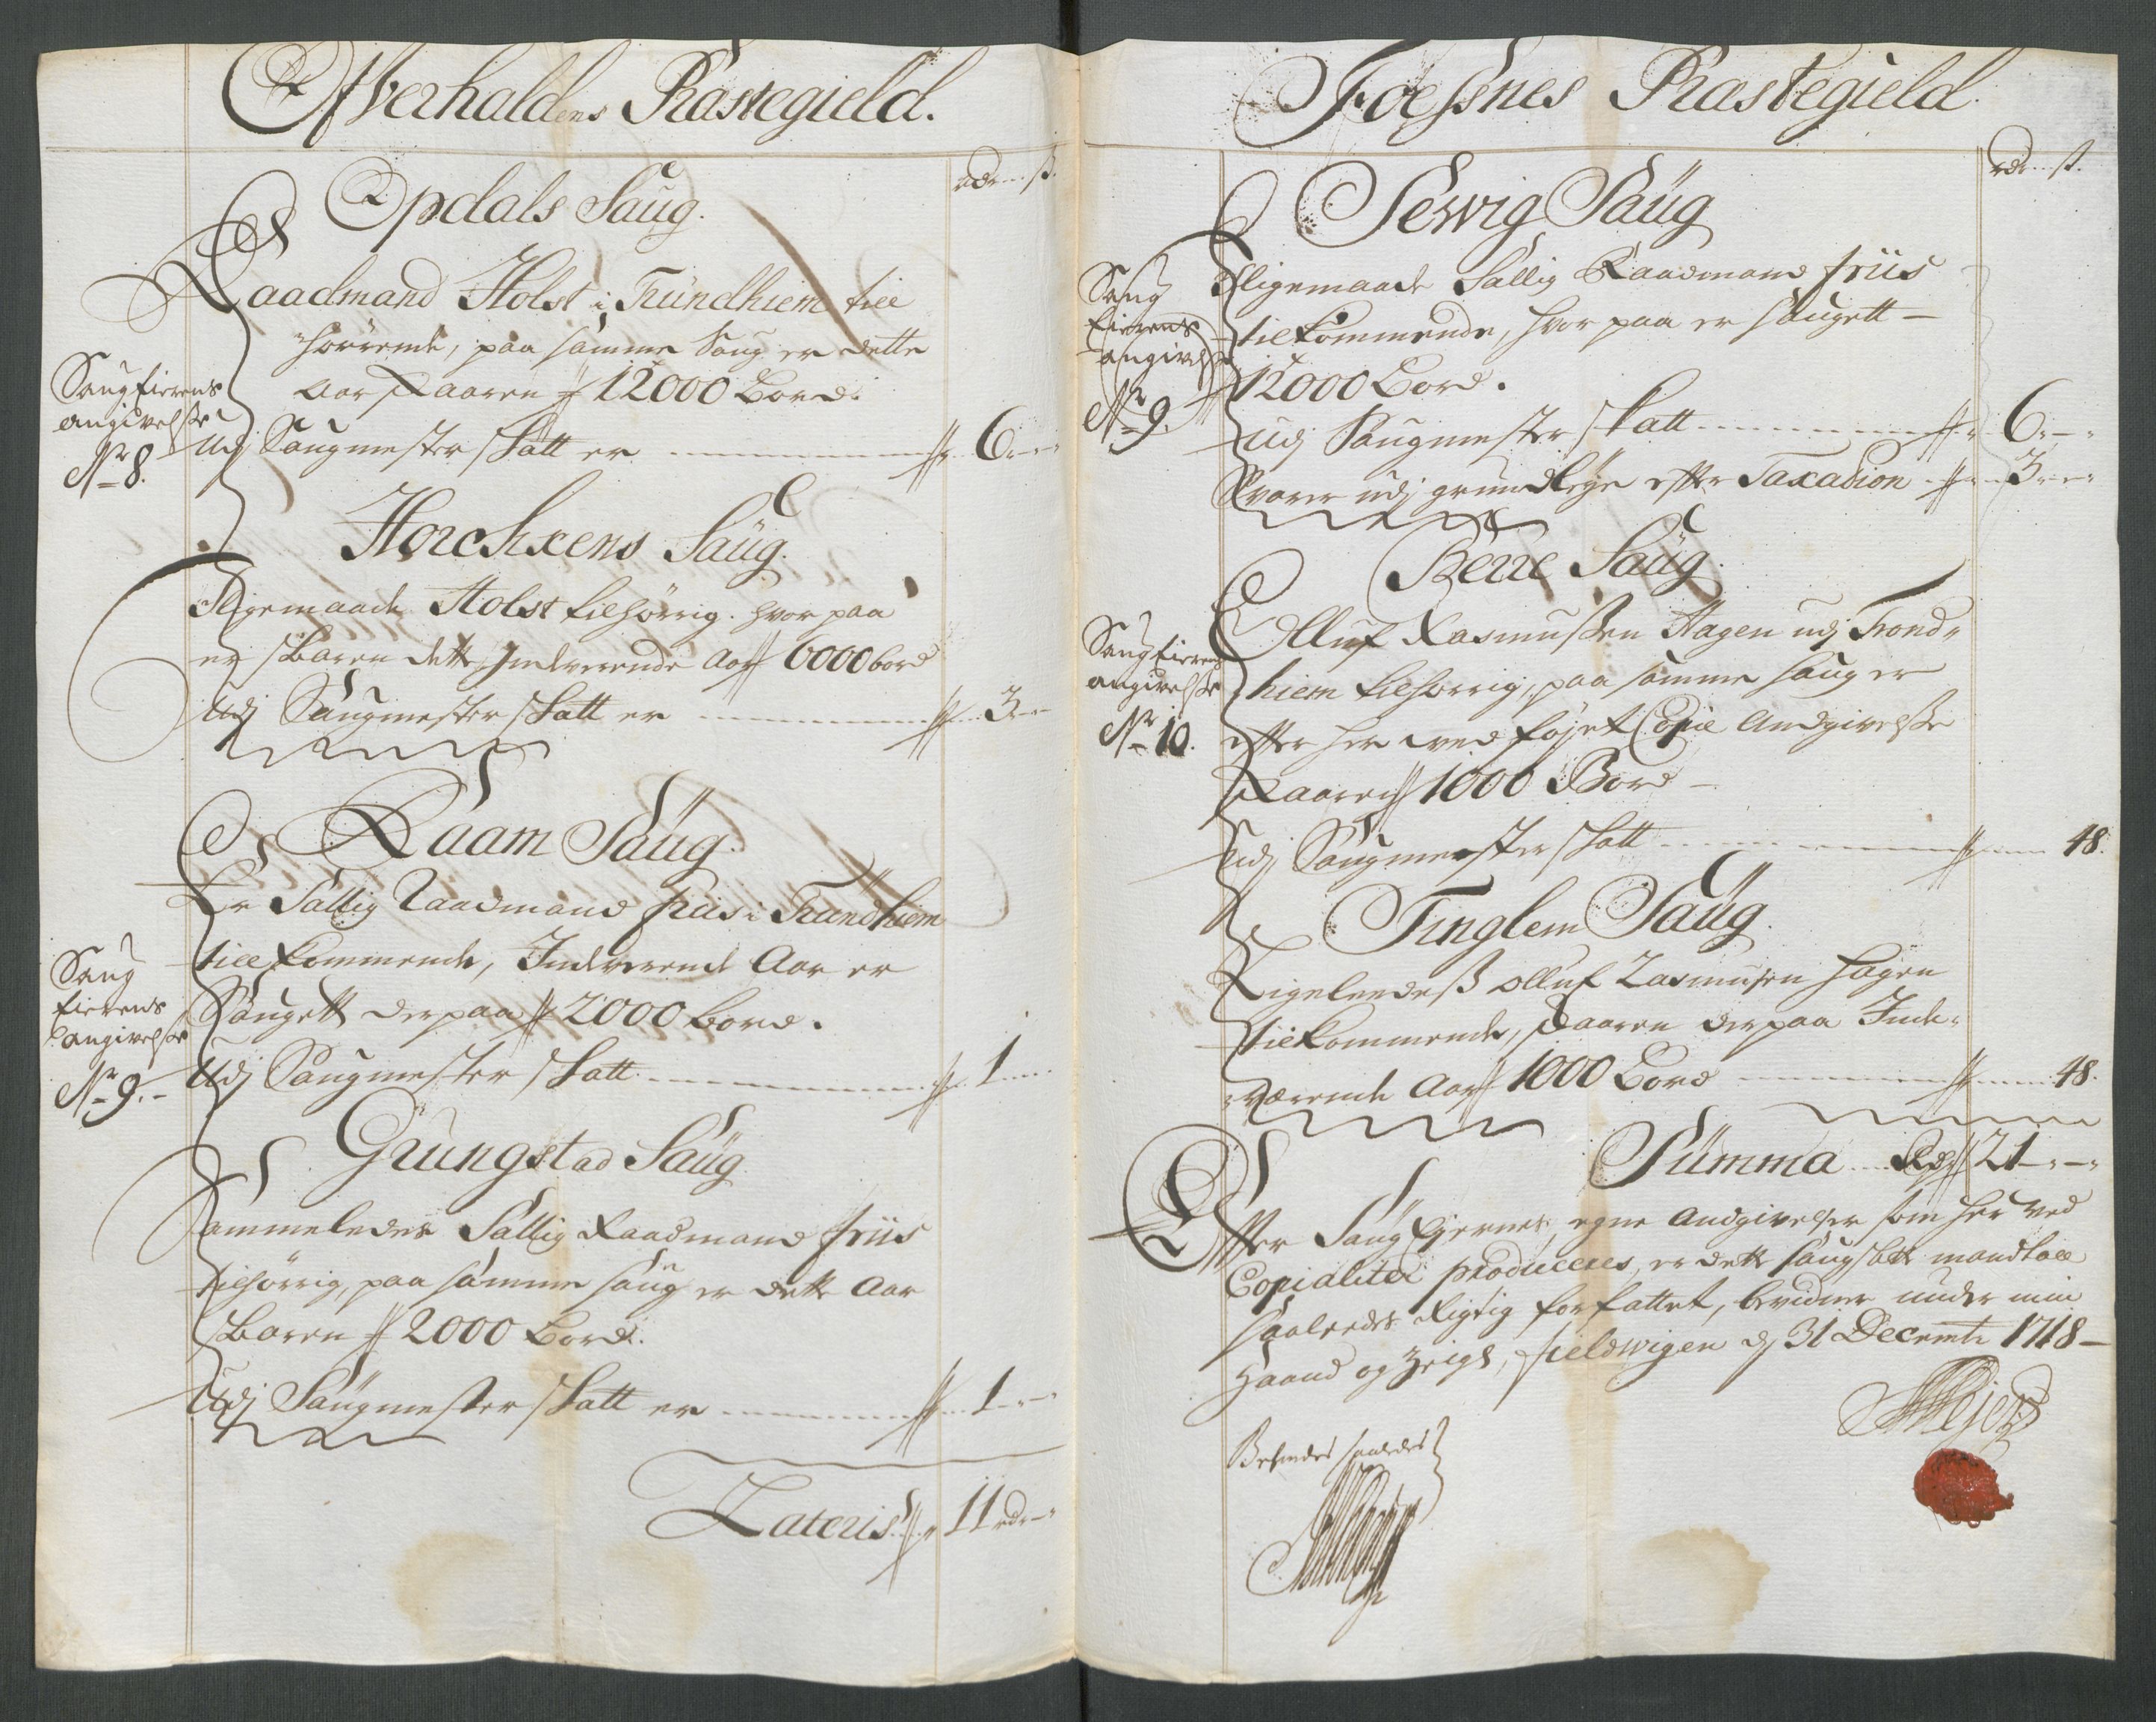 Offverhaldens Præstegield.
rdr ß.
Opdals Saug.
Raadmand Holst i Trundhiem till
hörrende, paa samme Saug er dette
Aar Skaaren # 12000 Bord.
Saug Eierens
angivelsse
No 8.
Udj Saugmester Skatt er # 6
Horchxens Saug.
Sligemaade Holst tilhörrig. hvor paa
er skaren dette Indverende Aar # 6000 bord
Udj Saugmester Skatt er # 3
Raam Saug.
Er Sallig Raadmand friis i Trundhiem
till kommende, Indverende Aar er
Saugett der paa # 2000 bord.
Saug
Eierens
angivelsse
No 9.
Udj Saugmester Skatt # 1
Grungstad Saug.
Sammeledes Sallig Raadmand friis
tilhörrig, paa samme saug er dette Aar
skaren # 2000 Bord.
Udj Saugmester Skatt er # 1
Lateris # 11 rdr
Foessnes Præstegield.
rdr ß.
Sewig Saug
Sligemaade Sallig Raadmand friis
tilkommende, hvor paa er saugett
12000 Bord.
Saug
Eierens
angivelsse
No 9.
udj Saugmester skatt # 6
Svarer udj grundleye efter Taxation # 3
Berre Saug.
Olluf Rasmussen Hagen udj Trond-
hiem tilhörrig, paa samme saug er
efter her ved föjet Copie Andgivelsse
Skaaren # 1000 Bord
Saug Eierens
angivelsse
No 10.
Udj Saugmester skatt # 48.
Tinglem Saug.
Ligeleedeß olluf Rasmusen Hagen
tilkommende, skaaren der paa Inde-
værende Aar # 1000 Bord # 48.
Summa Rdr # 21
Efter Saug Ejernes egne Andgivelser som her ved
Copialiter produceres, er dette saugskatt mandtall
saaleedes Rigtig forfattet, bevidner under min
Haand og Zeigl, fieldwigen d 31 Decembr 1718
Befindes saaledes